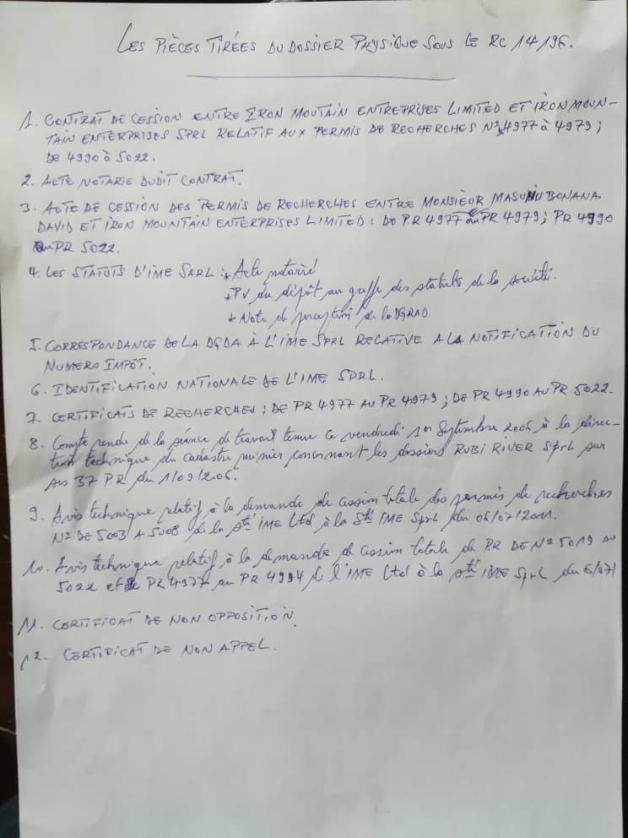 LES PIÈCES TIRÉES DU DOSSIER PHYSIQUE SOUS LE RC 14196.
1. CONTRAT DE CESSION ENTRE IRON MOUTAIN ENTREPRISES LIMITED ET IRON MOUN-
TAIN ENTERPRISES SPRL RELATIF AUX PERMIS DE RECHERCHES Nos 4977 à 4979;
DE 4990 à 5022.
2. ACTE NOTARIE DUDIT CONTRAT.
3. ACTE DE CESSION DES PERMIS DE RECHERCHES ENTRE MONSIEUR BONANA
DAVID ET IRON MOUNTAIN ENTERPRISES LIMITED : DE PR 4977 au PR 4979; PR 4990
au PR 5022.
4. LES STATUTS D'IME SARL : + Acte notarié
+ PV du dépôt au greffe des statuts de la société.
+ Note de perception de la DGRAD
5. CORRESPONDANCE DE LA DGDA À L'IME SPRL RELATIVE A LA NOTIFICATION DU
NUMERO IMPÔT.
6. IDENTIFICATION NATIONALE DE L'IME SPRL.
7. CERTIFICATS DE RECHERCHES : DE PR 4977 AU PR 4979; DE PR 4990 AU PR 5022.
8. Compte rendu de la séance de travail tenue ce vendredi 1er Septembre 2006 à la direc-
tion technique du cadastre minier concernant les dossiers RUBI RIVER Sprl sur
ses 37 PR du 1/09/2006.
9. Avis technique relatif à la demande de cession totale des permis de recherches
N° DE 5003 A 5008 de la Sté IME Ltd à la Sté IME Sprl du 06/07/2011.
10. Avis technique relatif à la demande de cession totale de PR DE N° 5019 AU
5022 et de PR 4977 au PR 4994 de l'IME Ltd à la Sté IME Sprl du 6/07/
11. CERTIFICAT DE NON OPPOSITION.
12. CERTIFICAT DE NON APPEL.